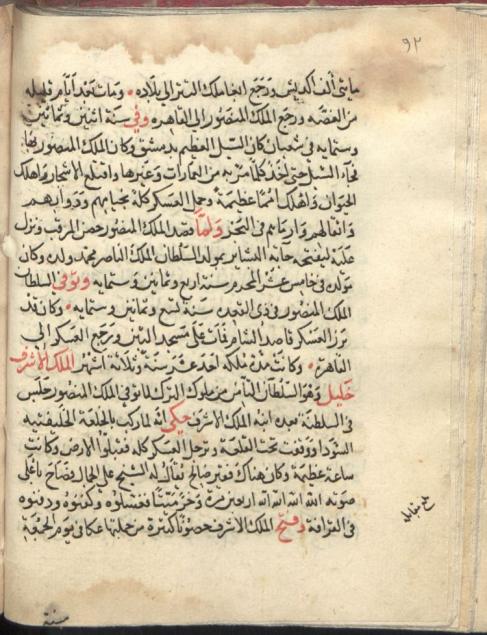 ٩٢
مايتى ألف اكديش ورجع ابغا ملك التتر الى بلاده ۰ ومات بعد ايام قليله
من الغصه ورجع الملك المنصور الى القاهره وفي سنة اثنين وثمانين
وستمايه فى شعبان كان السيل العظيم بدمشق وكان الملك المنصور بها
فجاء السيل حتى اخذ كلما مر به من العمارات وغيرها واقتلع الاشجار واهلك
الحيوان واهلك امما عظيمة وحمل العسكر كله بخيامهم ودوابهم
واثقالهم وارماهم فى البحر ولما قصد الملك المنصور حصن المرقب ونزل
عليه ليفتحه جاته البشاير بمولد السلطان الملك الناصر محمد ولده وكان
مولده في خامس عشر المحرم سنة اربع وثمانين وستمايه وتوفى السلطان
الملك المنصور فى ذى القعده سنة تسع وثمانين وستمايه ۰ وكان قد
برز العسكر قاصدا الشام فمات على مسجد التبن ورجع العسكر الى
القاهره ۰ وكانت مدة ملكه احد عشر سنة وثلاثة اشهر الملك الاشرف
خليل وهو السلطان الثامن من ملوك الترك لما توفى الملك المنصور جلس
فى السلطنة بعده ابنه الملك الاشرف حكى انه لما ركب بالخلعة الخليفتيه
السودا ووقف تحت القلعة وترجل العسكر كله فقبلوا الارض وكانت
ساعة عظيمة وكان هناك فقير صالح يقال له الشيخ على الجمال فصاح باعلى
صوته الله الله الله الله اربعين مرة وخر ميتا فغسلوه وكفنوه ودفنوه
فى القرافة وفتح الملك الاشرف حصونا كثيرة من جملتها عكا فى يوم الجمعة
بلغ مقابله